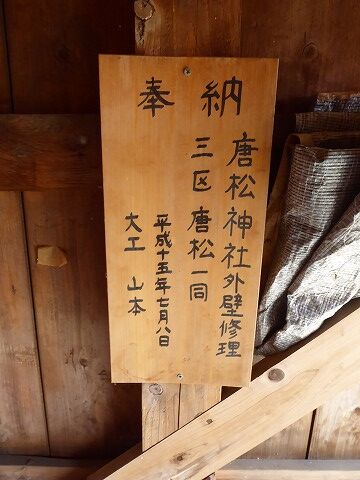 奉納
唐松神社外壁修理
三区唐松一同
平成十五年七月八日
大工 山本